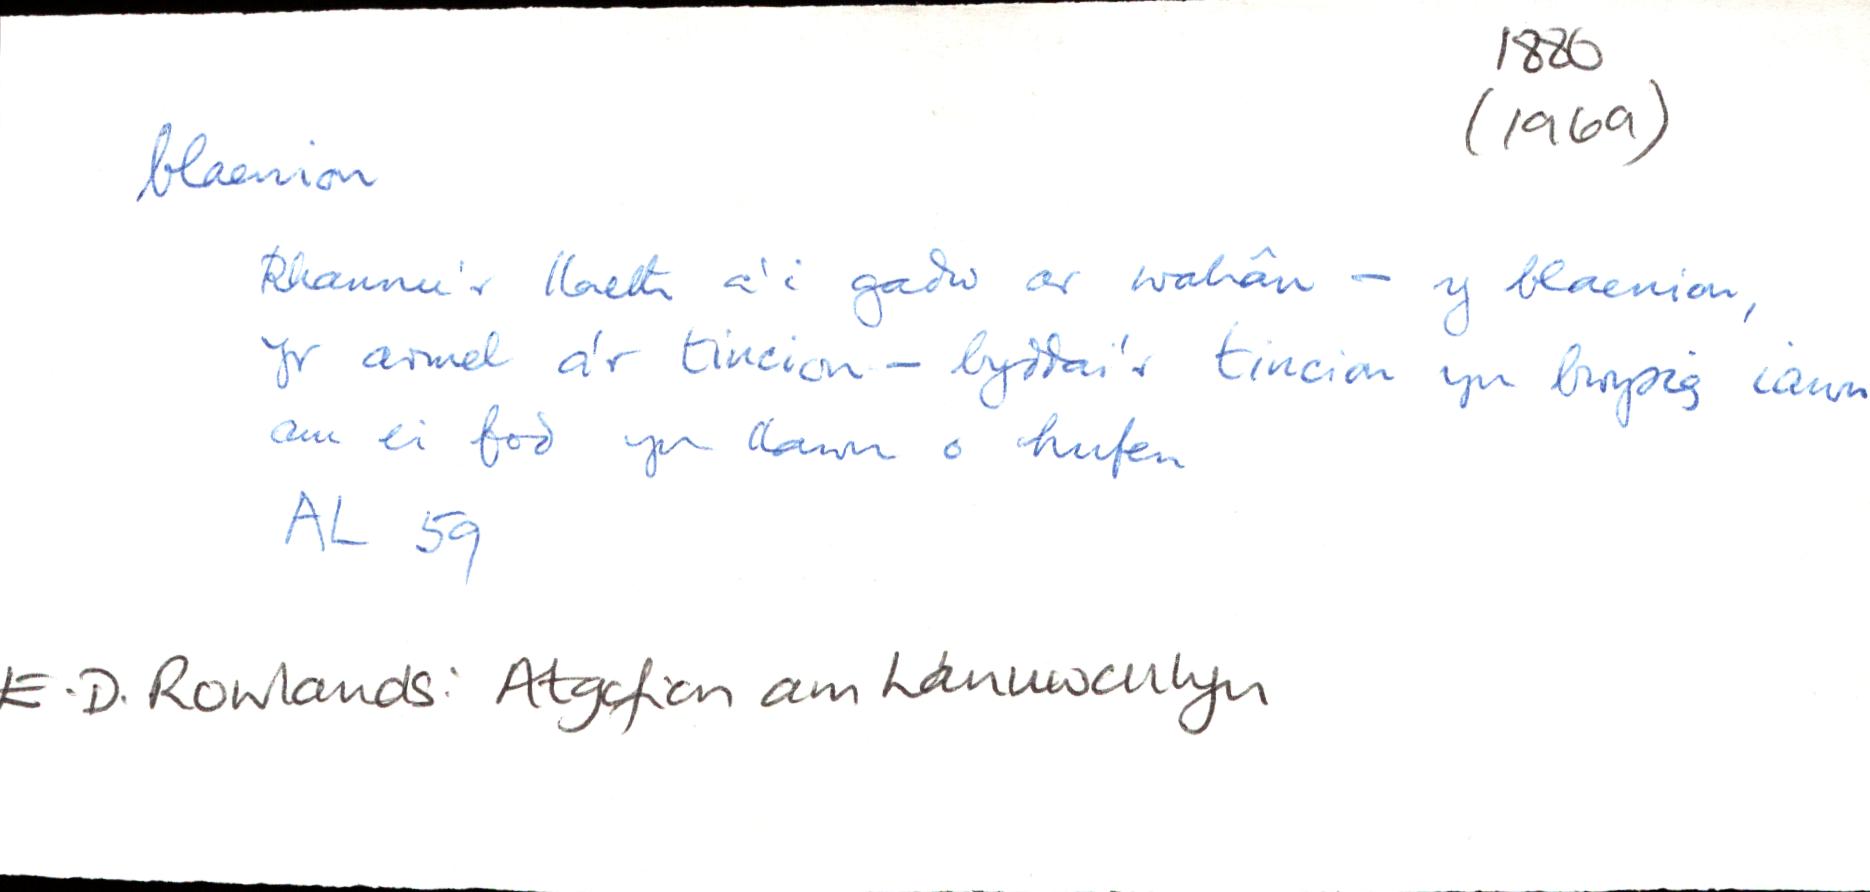 1880
(1969)
blaenion
Rhannu'r llaeth a'i gadw ar wahân – y blaenion,
yr armel a'r tincion – byddai'r tincion yn bwysig iawn
am ei fod yn llawn o hufen
AL 59
E.D. Rowlands: Atgofion am Lanuwchllyn